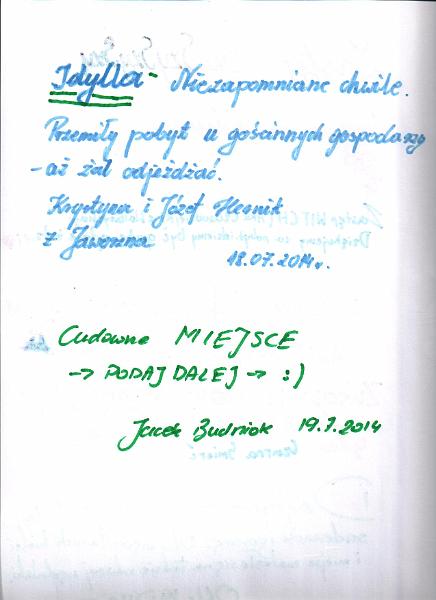 Idylla - Niezapomniane chwile.
Przemiły pobyt u gościnnych gospodarzy
- aż żal odjeżdżać.
Krystyna i Józef Hesnik
z Jaworzna
18.07.2014r.
Cudowne MIEJSCE
-> PODAJ DALEJ -> :)
Jacek Budniok 19.7.2014